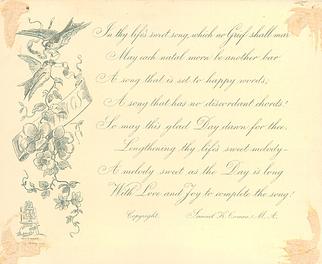 In thy life's sweet song, which no Grief shall mar
May each natal morn be another bar:
A song that is set to happy words;
A song that has no discordant chords!
So may this glad Day dawn for thee,
Lengthening thy life's sweet melody—
A melody sweet as the Day is long
With Love and Joy to complete the song!
Copyright. Samuel K. Cowan, M.A.